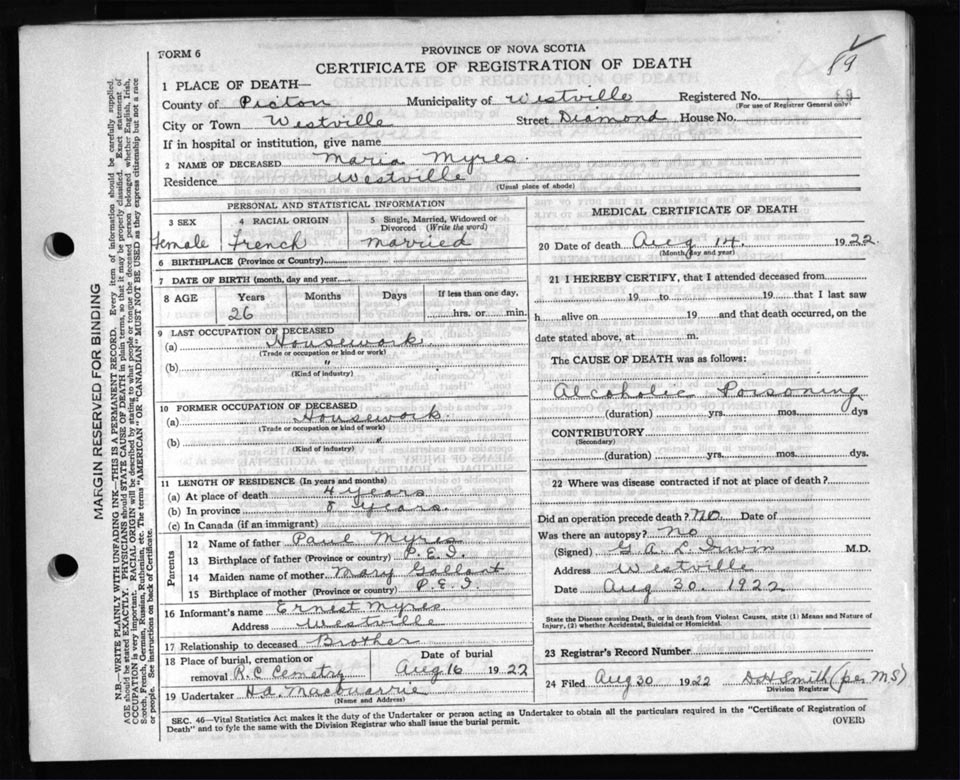 FORM 6
PROVINCE OF NOVA SCOTIA
CERTIFICATE OF REGISTRATION OF DEATH
19
1 PLACE OF DEATH—
County of Pictou Municipality of Westville Registered No.
(For use of Registrar General only)
City or Town Westville Street Diamond House No.
If in hospital or institution, give name
2 NAME OF DECEASED Maria Myres.
Residence Westville
(Usual place of abode)
PERSONAL AND STATISTICAL INFORMATION
3 SEX
4 RACIAL ORIGIN
5 Single, Married, Widowed or Divorced (Write the word)
Female French Married
6 BIRTHPLACE (Province or Country)
7 DATE OF BIRTH (month, day and year)
8 AGE Years Months Days If less than one day,
26 hrs. or min.
9 LAST OCCUPATION OF DECEASED
(a) Housework.
(Trade or occupation or kind or work)
(b) "
(Kind of industry)
10 FORMER OCCUPATION OF DECEASED
(a) Housework.
(Trade or occupation or kind or work)
(b) "
(Kind of industry)
11 LENGTH OF RESIDENCE (In years and months)
(a) At place of death 4 years
(b) In province 8 years.
(c) In Canada (if an immigrant)
Parents
12 Name of father Paul Myres
13 Birthplace of father (Province or country) P.E.I.
14 Maiden name of mother Mary Gallant
15 Birthplace of mother (Province or country) P.E.I.
16 Informant's name Ernest Myres
Address Westville
17 Relationship to deceased Brother
18 Place of burial, cremation or removal R.C. Cemetry
Date of burial
Aug 16 1922
19 Undertaker H.A. Macquarrie
(Name and Address)
MEDICAL CERTIFICATE OF DEATH
20 Date of death Aug 14. 1922.
(Month, day and year)
21 I HEREBY CERTIFY, that I attended deceased from
19 to 19 that I last saw
h alive on 19 and that death occurred, on the
date stated above, at m.
The CAUSE OF DEATH was as follows:
Alcoholic Poisoning
(duration) yrs. mos. dys
CONTRIBUTORY
(Secondary)
(duration) yrs. mos. dys.
22 Where was disease contracted if not at place of death?
Did an operation precede death? No Date of
Was there an autopsy? No
(Signed) G. A. L. Irwin M.D.
Address Westville
Date Aug 30. 1922
State the Disease causing Death, or in death from Violent Causes, state (1) Means and Nature of
Injury, (2) whether Accidental, Suicidal or Homicidal.
23 Registrar's Record Number
24 Filed Aug 30 1922 D H Smith (per M S)
Division Registrar
SEC. 46—Vital Statistics Act makes it the duty of the Undertaker or person acting as Undertaker to obtain all the particulars required in the "Certificate of Registration of
Death" and to fyle the same with the Division Registrar who shall issue the burial permit. (OVER)
MARGIN RESERVED FOR BINDING
N.B.—WRITE PLAINLY WITH UNFADING INK—THIS IS A PERMANENT RECORD. Every item of information should be carefully supplied.
AGE should be stated EXACTLY. PHYSICIANS should STATE CAUSE OF DEATH in plain terms, so that it may be properly classified. Exact statement of
OCCUPATION is very important. RACIAL ORIGIN will be described by stating to what people or tongue the deceased person belonged, whether English, Irish,
Scotch, French, German, Russian, Ruthenian, etc. The terms "AMERICAN" OR "CANADIAN" MUST NOT BE USED as they express citizenship but not a race
or people. See instructions on back of Certificate.